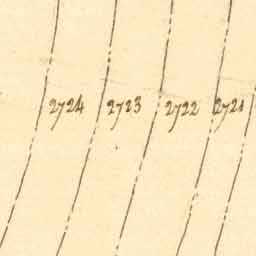 2724 2723 2722 2721